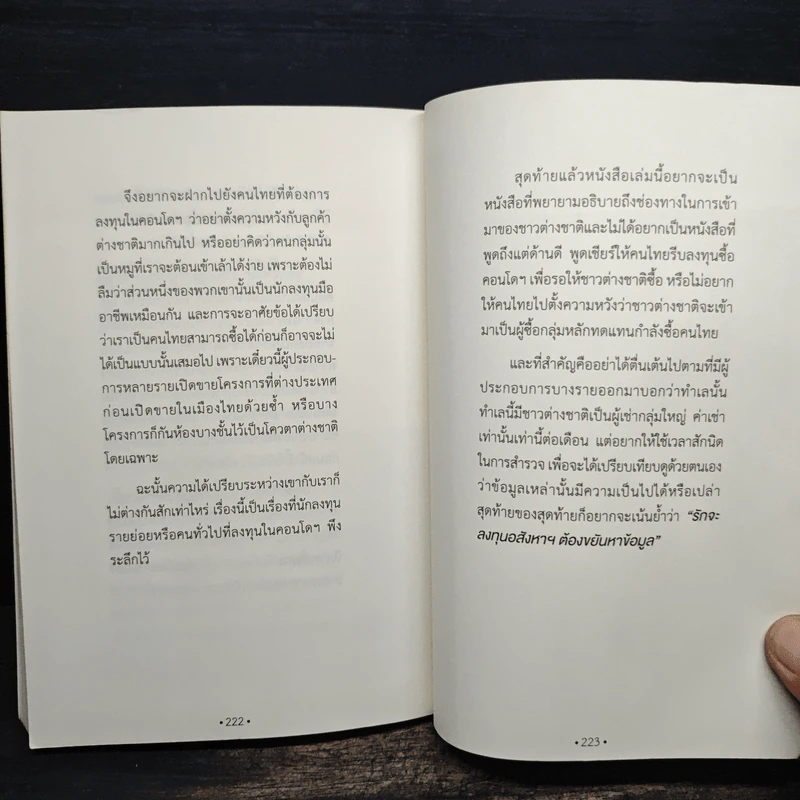 จึงอยากจะฝากไปยังคนไทยที่ต้องการ
ลงทุนในคอนโดฯ ว่าอย่าตั้งความหวังกับลูกค้า
ต่างชาติมากเกินไป หรืออย่าคิดว่าคนกลุ่มนั้น
เป็นหมูที่เราจะต้อนเข้าเล้าได้ง่าย เพราะต้องไม่
ลืมว่าส่วนหนึ่งของพวกเขานั้นเป็นนักลงทุนมือ
อาชีพเหมือนกัน และการจะอาศัยข้อได้เปรียบ
ว่าเราเป็นคนไทยสามารถซื้อได้ก่อนก็อาจจะไม่
ได้เป็นแบบนั้นเสมอไป เพราะเดี๋ยวนี้ผู้ประกอบ-
การหลายรายเปิดขายโครงการที่ต่างประเทศ
ก่อนเปิดขายในเมืองไทยด้วยซ้ำ หรือบาง
โครงการก็กันห้องบางชั้นไว้เป็นโควตาต่างชาติ
โดยเฉพาะ
ฉะนั้นความได้เปรียบระหว่างเขากับเราก็
ไม่ต่างกันสักเท่าไหร่ เรื่องนี้เป็นเรื่องที่นักลงทุน
รายย่อยหรือคนทั่วไปที่ลงทุนในคอนโดฯ พึง
ระลึกไว้
• 222 •
สุดท้ายแล้วหนังสือเล่มนี้อยากจะเป็น
หนังสือที่พยายามอธิบายถึงช่องทางในการเข้า
มาของชาวต่างชาติและไม่ได้อยากเป็นหนังสือที่
พูดถึงแต่ด้านดี พูดเชียร์ให้คนไทยรีบลงทุนซื้อ
คอนโดฯ เพื่อรอให้ชาวต่างชาติซื้อ หรือไม่อยาก
ให้คนไทยไปตั้งความหวังว่าชาวต่างชาติจะเข้า
มาเป็นผู้ซื้อกลุ่มหลักทดแทนกำลังซื้อคนไทย
และที่สำคัญคืออย่าได้ตื่นเต้นไปตามที่มีผู้
ประกอบการบางรายออกมาบอกว่าทำเลนั้น
ทำเลนี้มีชาวต่างชาติเป็นผู้เช่ากลุ่มใหญ่ ค่าเช่า
เท่านั้นเท่านี้ต่อเดือน แต่อยากให้ใช้เวลาสักนิด
ในการสำรวจ เพื่อจะได้เปรียบเทียบดูด้วยตนเอง
ว่าข้อมูลเหล่านั้นมีความเป็นไปได้หรือเปล่า
สุดท้ายของสุดท้ายก็อยากจะเน้นย้ำว่า “รักจะ
ลงทุนอสังหาฯ ต้องขยันหาข้อมูล”
• 223 •